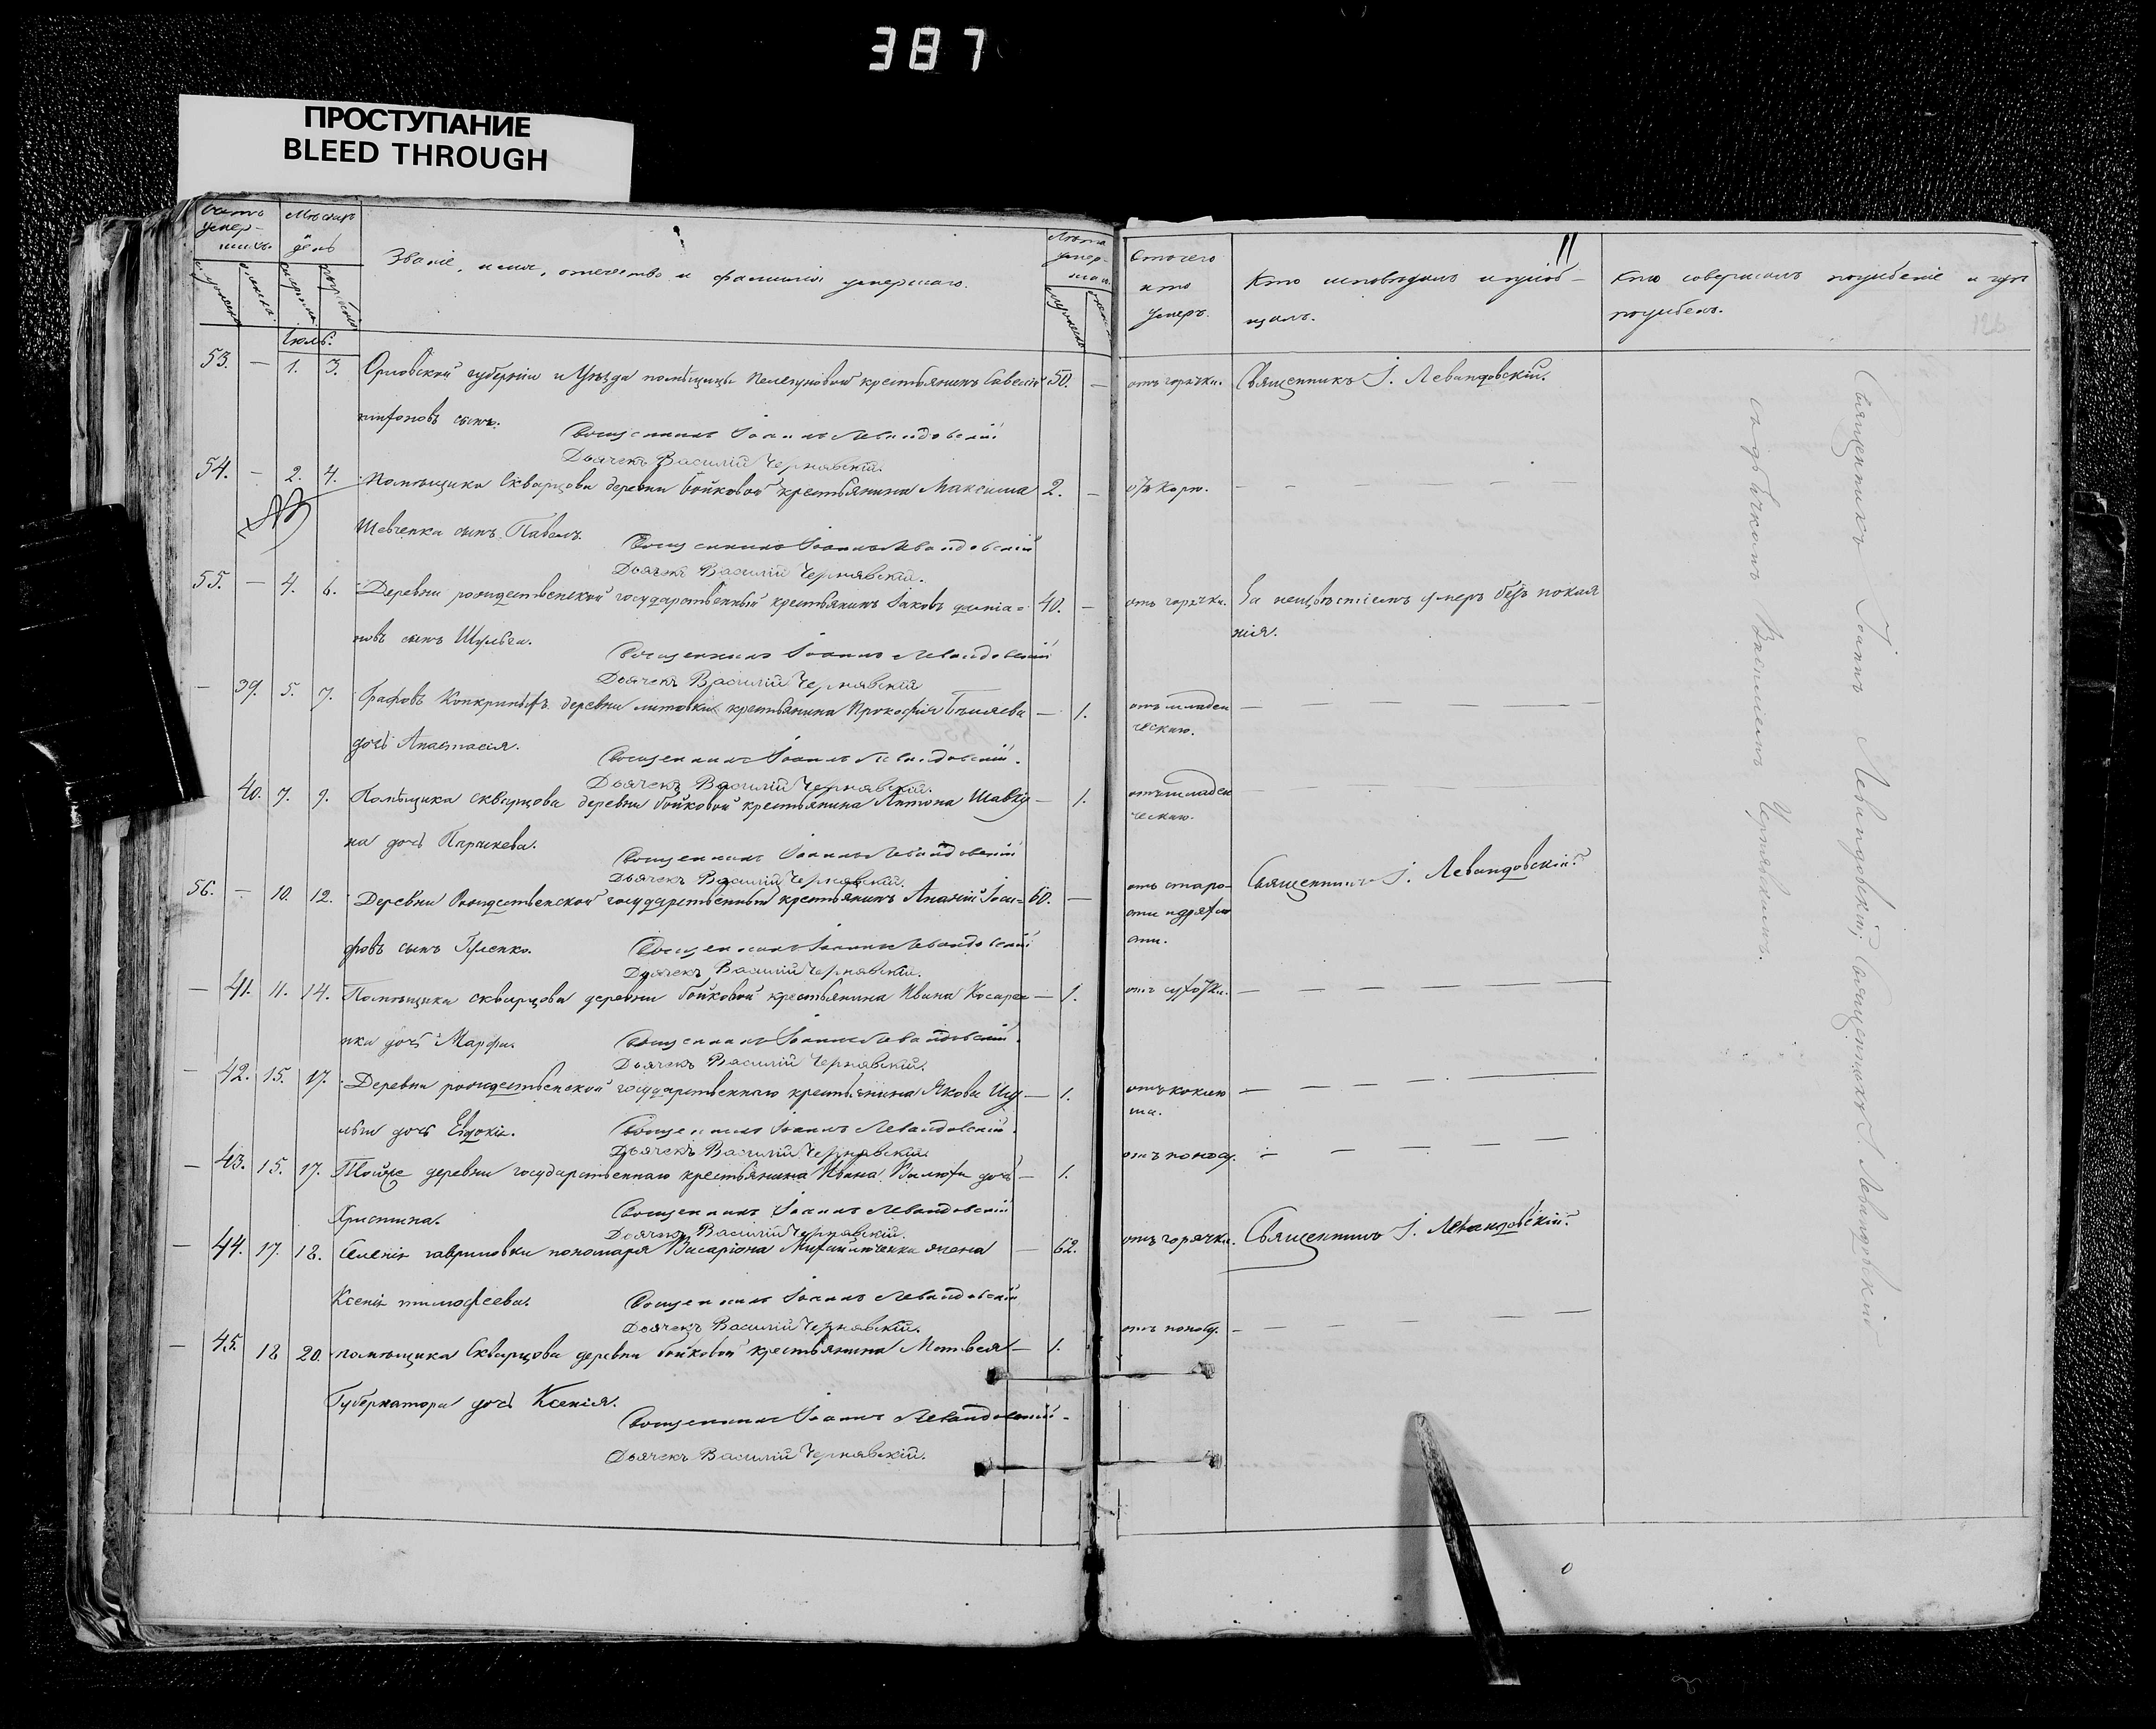 387
ПРОСТУПАНИЕ
BLEED THROUGH
Счетъ умер- шихъ.
Мѣсяцъ и день
Званіе, имя, отечество и фамилія умершаго.
Лѣта умер- шаго.
Отъ чего кто умеръ.
Кто исповѣдалъ и пріоб- щалъ.
Кто совершалъ погребеніе и гдѣ погребенъ.
11
Іюль.
53. — 1. 3. Орловской губерніи и Уѣзда помѣщицы крестьянинъ 50. — отъ горячки. Священникъ І. Левандовскій.
сынъ.
Священникъ Іоаннъ Левандовскій
Дьячекъ Василій Чернявскій.
54. — 2. 4. Помѣщика Скварцова деревни бойковой крестьянина Максима 2. — отъ кори. — — — —
Шевченка сынъ Павелъ.
Священникъ Іоаннъ Левандовскій
Дьячекъ Василій Чернявскій.
55. — 4. 6. Деревни рождественской государственный крестьянинъ Іаковъ 40. — отъ горячки. За неизвѣстіемъ умеръ безъ покая
новъ сынъ Шульга. нія.
Священникъ Іоаннъ Левандовскій
Дьячекъ Василій Чернявскій
— 39. 5. 7. Графовъ Конкриныхъ деревни литовки крестьянина Прокофія Бѣляева — 1. отъ младен — — — —
дочь Анастасія. ческаго.
Священникъ Іоаннъ Левандовскій.
Дьячекъ Василій Чернявскій.
40. 7. 9. Помѣщика скварцова деревни бойковой крестьянина Антона Шавку — 1. отъ младен — — —
на дочь Параскева. ческаго.
Священникъ Іоаннъ Левандовскій
Дьячекъ Василій Чернявскій.
56. — 10. 12. Деревни Рождественской государственный крестьянинъ Ананій Іоси= 60. — отъ старо- Священникъ І. Левандовскій.
фовъ сынъ Гуленко. сти и дряхло
сти.
Священникъ Іоаннъ Левандовскій
Дьячекъ Василій Чернявскій.
— 41. 11. 14. Помѣщика скварцова деревни бойковой крестьянина Ивана Косарен — 1. отъ сухотки. — — — —
ка дочь Марфа.
Священникъ Іоаннъ Левандовскій.
Дьячекъ Василій Чернявскій.
— 42. 15. 17. Деревни рождественской государственнаго крестьянина Якова Шу — 1. отъ коклю — — — —
льги дочь Евдокія. ша.
Священникъ Іоаннъ Левандовскій.
Дьячекъ Василій Чернявскій.
— 43. 15. 17. Той же деревни государственнаго крестьянина Ивана дочь — 1. отъ поносу. — — — —
Христина.
Священникъ Іоаннъ Левандовскій
Дьячекъ Василій Чернявскій.
— 44. 17. 18. Селенія гавриловки пономаря Висаріона жена — 62. отъ горячки. Священникъ І. Левандовскій.
Ксенія тимофеева.
Священникъ Іоаннъ Левандовскій
Дьячекъ Василій Чернявскій.
— 45. 18 20. помѣщика Скварцова деревни бойковой крестьянина Матвея — 1. отъ поносу. — — — —
Губернатора дочь Ксенія.
Священникъ Іоаннъ Левандовскій.
Дьячекъ Василій Чернявскій.
Священникъ Іоаннъ Левандовскій. Священникъ І. Левандовскій
съ дьячкомъ Василіемъ Чернявскимъ.